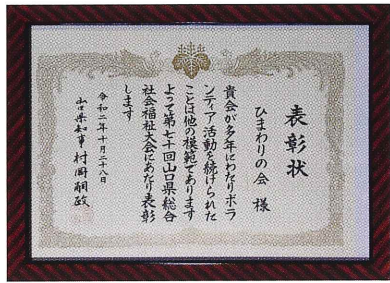 表彰状
ひまわりの会 様
貴会が多年にわたりボラ
ンティア活動を続けられた
ことは他の模範であります
よって第七十回山口県総合
社会福祉大会にあたり表彰
します
令和二年十月二十八日
山口県知事 村岡嗣政